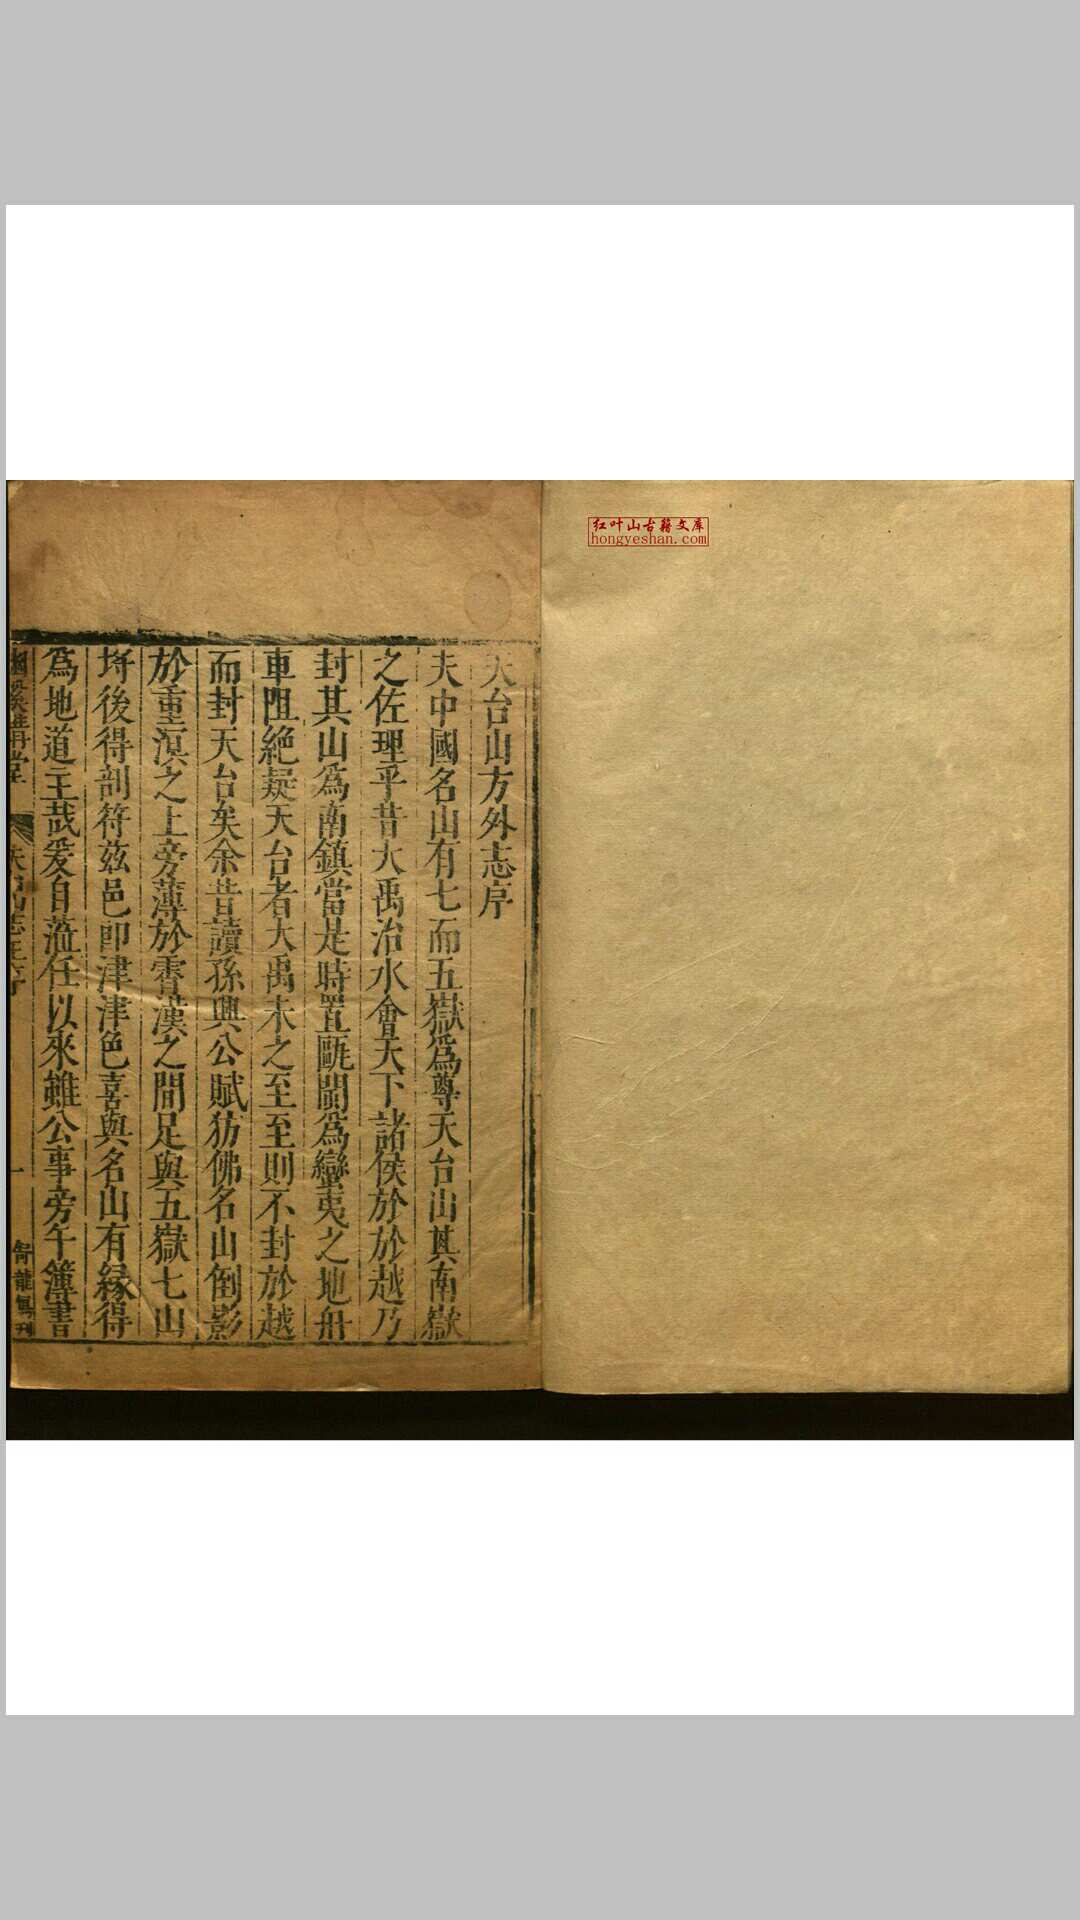 红叶山古籍文库
hongyeshan.com
天台山方外志序
夫中國名山有七而五嶽爲尊天台山其南嶽
之佐理乎昔大禹治水會天下諸侯於於越乃
封其山爲南鎮當是時置甌閩爲蠻夷之地舟
車阻絶疑天台者大禹未之至至則不封於越
而封天台矣余昔讀孫興公賦彷佛名山倒影
於重溟之上旁薄於霄漢之間足與五嶽七山
埒後得剖符茲邑卽津津色喜與名山有緣得
爲地道主哉爰自蒞任以來雖公事旁午簿書
幽溪 天台山志 序 一